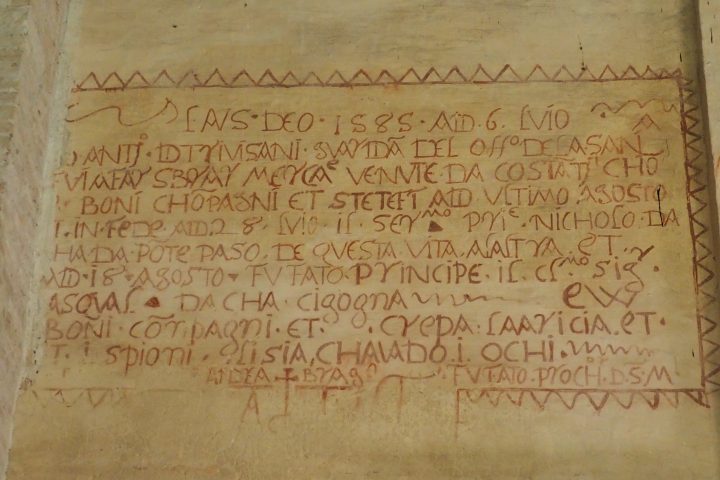 LAVS · DEO · 1585 · AID · 6 · LVIO
ANTJ · D TRIVISANI · GVARDA DEL OFF° DE LA SANL A
FVI A FAR SBORAR MERCA VENVTE DA COSTATJ CHO
BONI CHOPAGNI ET STETEFT AID VLTIMO AGOSTO
I IN FEDE AID 28 LVIO · IL SERmo PRIe · NICHOLO DA
HA DA POTE PASO DE QVESTA VITA A LALTRA · ET ·
AID · 18 · AGOSTO · FV FATO PRINCIPE · IL CLmo SIG ·
ASQVAL DA CHA CIGOGNA
BONI · COM PAGNI · ET · CREPA · LAARICIA · ET ·
T · I SPIONI · GLI SIA CHAVADO · I OCHI ·
ANDEA + BRAG° · FV FATO · PROCH · D · S · M